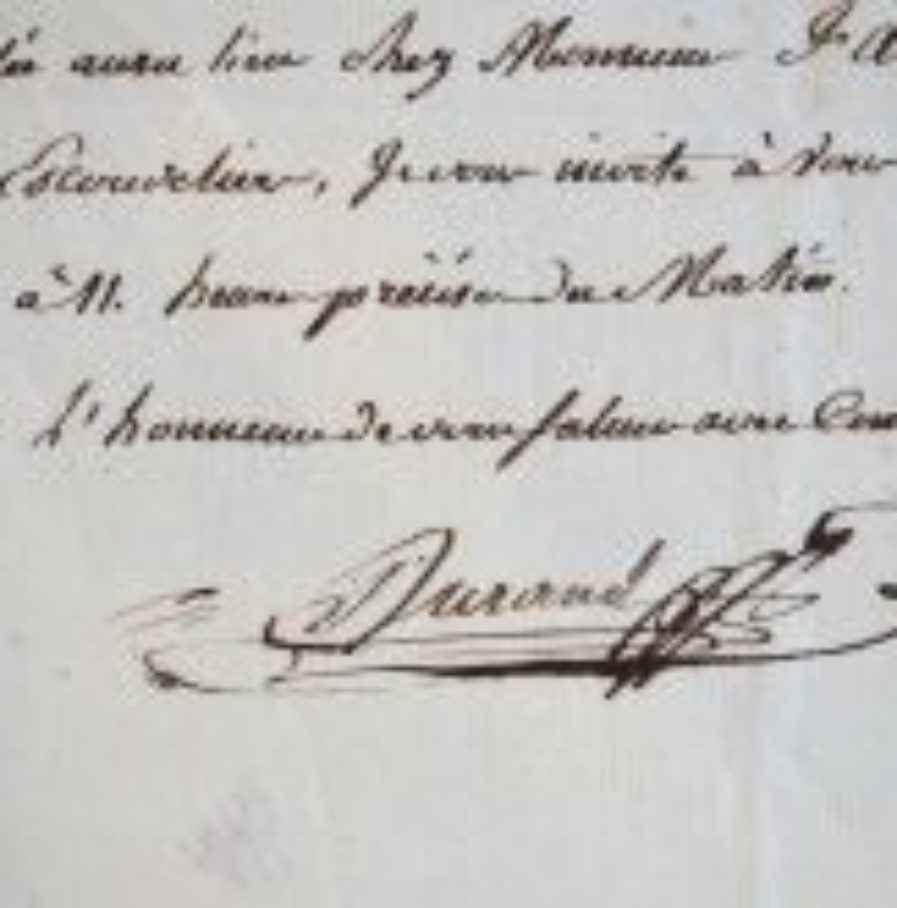 aura lieu chez Monsieur J. A
Escouvelier, Je vous invite à vous
à 11. heures précises du Matin.
l'honneur de vous saluer avec
Durand